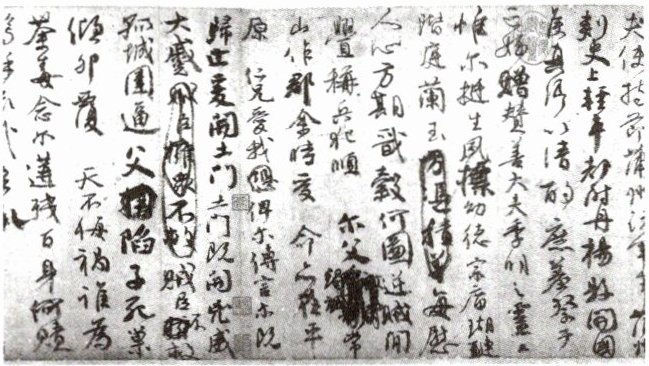 夫使持節蒲州諸軍事蒲州
刺史上輕車都尉丹楊縣開國
侯真卿以清酌庶羞祭于
亡姪贈贊善大夫季明之靈曰
惟爾挺生夙標幼德宗廟瑚璉
階庭蘭玉方憑積善每慰
人心方期戩穀何圖逆賊間
釁稱兵犯順爾父竭誠常
山作郡余時受命亦在平
原仁兄愛我恐俾爾傳言爾既
歸止爰開土門土門既開凶威
大蹙賊臣擁眾不救賊臣不救
孤城圍逼父陷子死巢
傾卵覆天不悔禍誰為
荼毒念爾遘殘百身何贖
嗚乎哀哉吾承